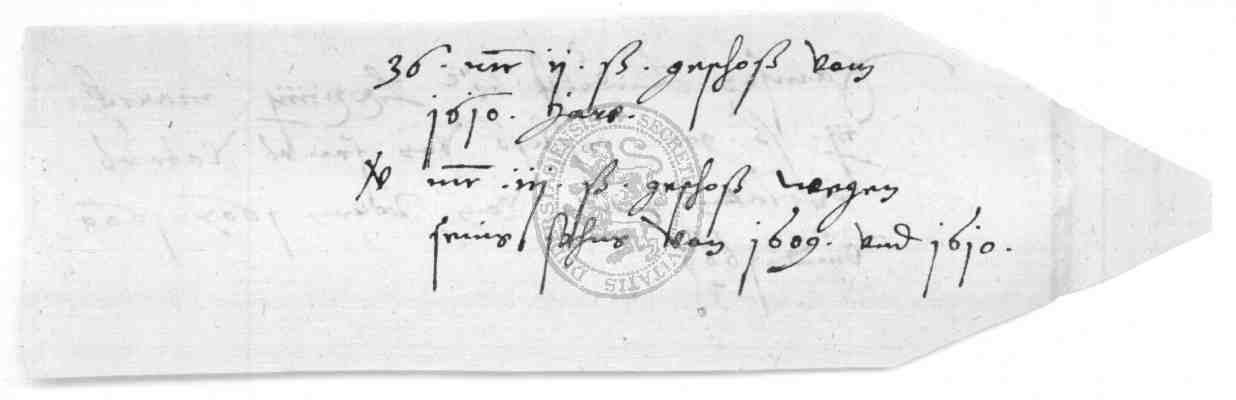 36. mr ij. ß. geschoß vom
1610. Jare.
xv mr .iij. ß. geschoß wegen
seines sohns von 1609. vnd 1610.
SECRET CIVITATIS